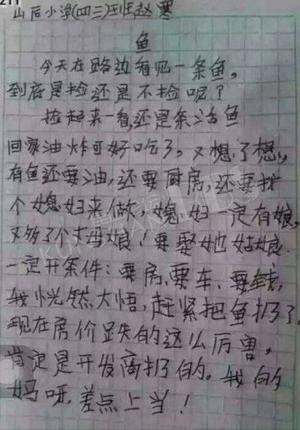 山后小学(四三)班赵寒
鱼
今天在路边看见一条鱼,
到底是捡还是不捡呢?
捡起来一看还是条活鱼
回家油炸可好吃了。又想了想,
有鱼还要油,还要厨房,还要找
个媳妇来做,媳妇一定有娘,
又多了个丈母娘!要娶她姑娘
一定开条件:要房、要车、要钱,
我恍然大悟,赶紧把鱼扔了。
现在房价跌的这么厉害,
肯定是开发商扔的。我的
妈呀,差点上当!